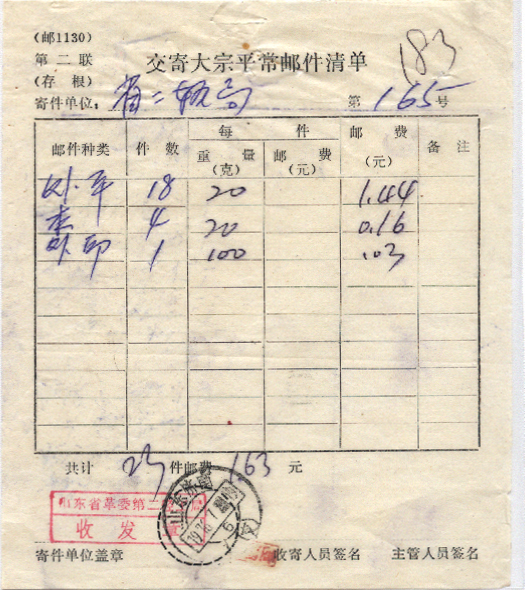 (邮1130)
第二联
(存根)
交寄大宗平常邮件清单
183
寄件单位: 省二轻局
第165号
邮件种类 件数 每件 邮费(元) 备注
重量(克) 邮费(元)
外平 18 20 1.44
本 4 20 0.16
外印 1 100 .03
共计 23 件邮费 163 元
山东省革委第二
收发
山东济南
寄件单位盖章 收寄人员签名 主管人员签名